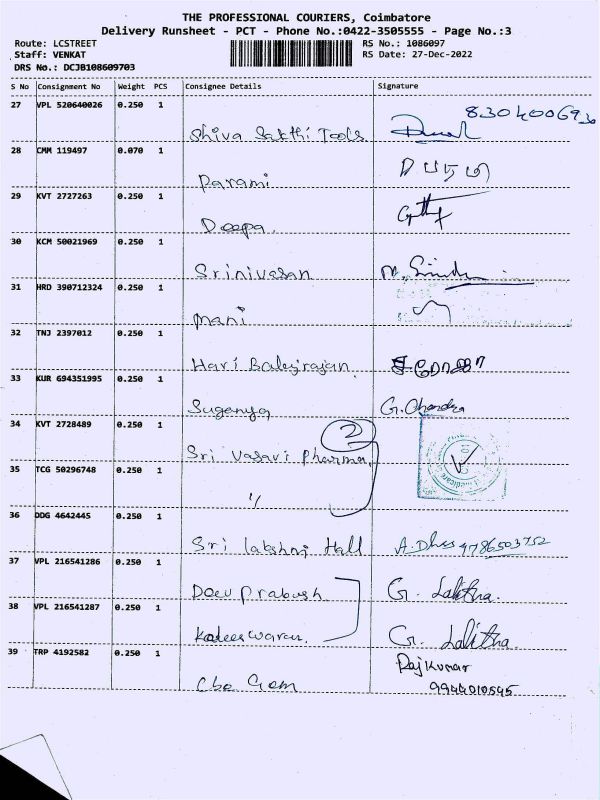 THE PROFESSIONAL COURIERS, Coimbatore
Delivery Runsheet - PCT - Phone No.:0422-3505555 - Page No.:3
Route: LCSTREET RS No.: 1086097
Staff: VENKAT RS Date: 27-Dec-2022
DRS No.: DCJB108609703
S No Consignment No Weight PCS Consignee Details Signature
27 VPL 520640026 0.250 1
Shiva Sakthi Tools
28 CMM 119497 0.070 1
Parami
29 KVT 2727263 0.250 1
Deepa
30 KCM 50021969 0.250 1
Srinivasan
31 HRD 390712324 0.250 1
Mani
32 TNJ 2397012 0.250 1
Hari
33 KUR 694351995 0.250 1
Suganya G. Chandra
34 KVT 2728489 0.250 1 2
Sri Vasavi Pharma
35 TCG 50296748 0.250 1
"
36 DDG 4642445 0.250 1
Sri lakshmi Hall 9786503752
37 VPL 216541286 0.250 1
Prabush G. Lalitha
38 VPL 216541287 0.250 1
Kateeswaran. G. Lalitha
39 TRP 4192582 0.250 1 Rajkumar
9944010545